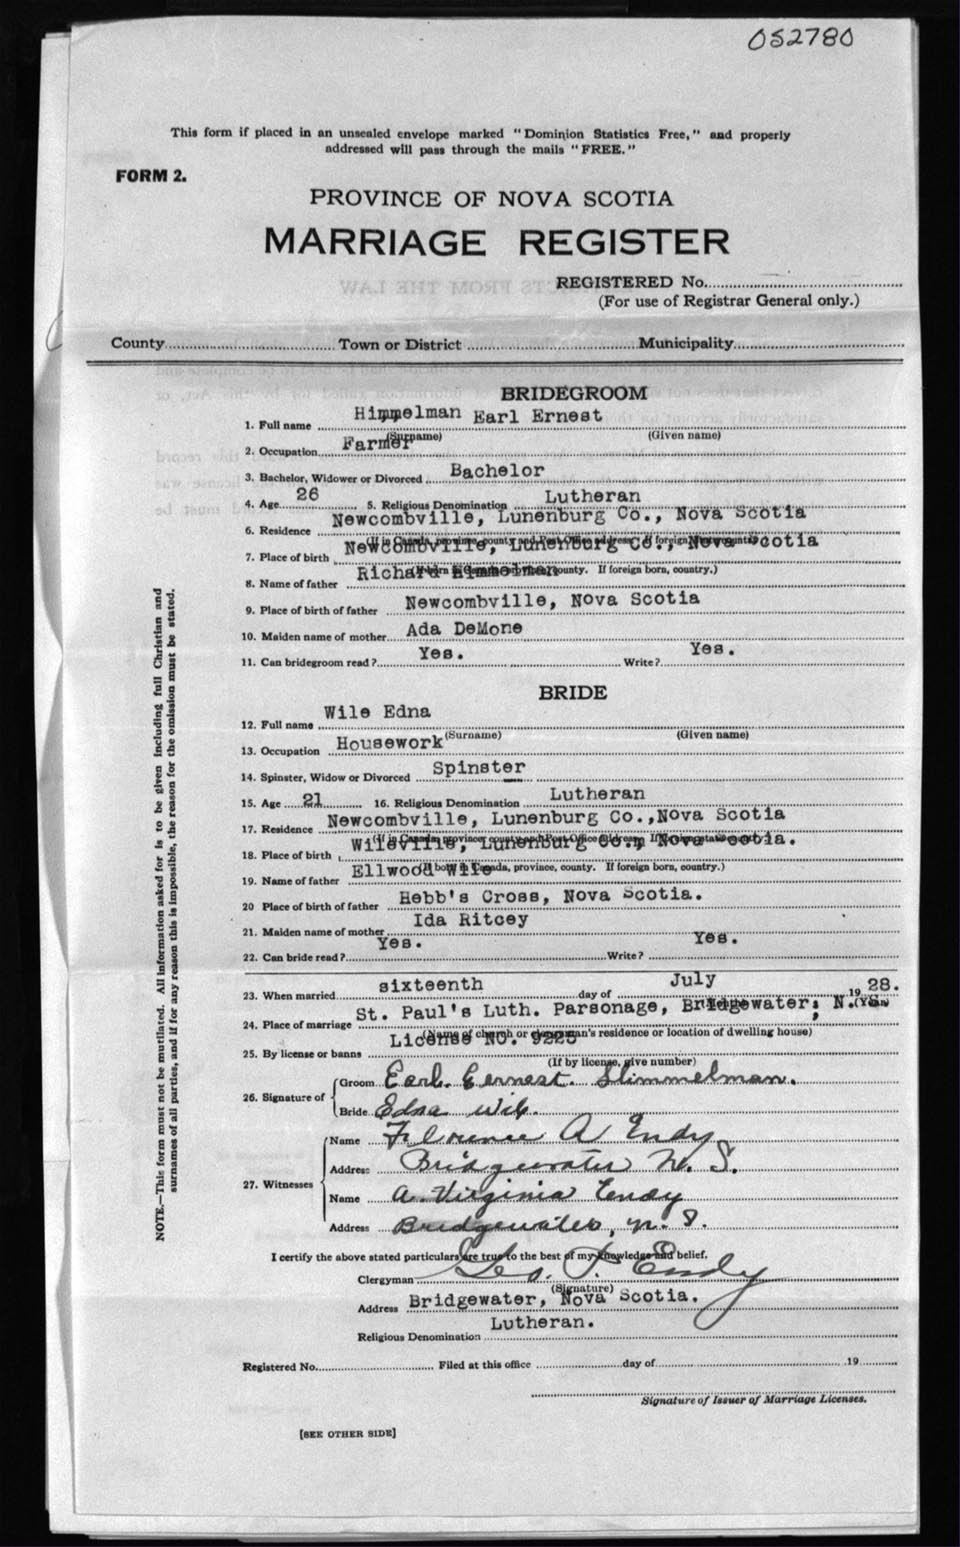 052780
This form if placed in an unsealed envelope marked "Dominion Statistics Free," and properly
addressed will pass through the mails "FREE."
FORM 2.
PROVINCE OF NOVA SCOTIA
MARRIAGE REGISTER
REGISTERED No.
(For use of Registrar General only.)
County Town or District Municipality
BRIDEGROOM
1. Full name Himmelman Earl Ernest
(Surname) (Given name)
2. Occupation Farmer
3. Bachelor, Widower or Divorced Bachelor
4. Age 26 5. Religious Denomination Lutheran
6. Residence Newcombville, Lunenburg Co., Nova Scotia
(If in Canada, province, county and Post Office address. If foreign, country)
7. Place of birth Newcombville, Lunenburg Co., Nova Scotia
(If born in Canada, province, county. If foreign born, country.)
8. Name of father Richard Himmelman
9. Place of birth of father Newcombville, Nova Scotia
10. Maiden name of mother Ada DeMone
11. Can bridegroom read? Yes. Write? Yes.
BRIDE
12. Full name Wile Edna
(Surname) (Given name)
13. Occupation Housework
14. Spinster, Widow or Divorced Spinster
15. Age 21 16. Religious Denomination Lutheran
17. Residence Newcombville, Lunenburg Co.,Nova Scotia
(If in Canada, province, county and Post Office address. If foreign, country)
18. Place of birth Wileville, Lunenburg Co., Nova Scotia.
(If born in Canada, province, county. If foreign born, country.)
19. Name of father Ellwood Wile
20 Place of birth of father Hebb's Cross, Nova Scotia.
21. Maiden name of mother Ida Ritcey
22. Can bride read? Yes. Write? Yes.
23. When married sixteenth day of July 1928.
(Month) (Year)
24. Place of marriage St. Paul's Luth. Parsonage, Bridgewater, N.S.
(Name of church or clergyman's residence or location of dwelling house)
25. By license or banns License NO. 9225
(If by license, give number)
26. Signature of Groom Earl Ernest Himmelman.
Bride Edna Wile.
27. Witnesses Name Florence A Endy
Address Bridgewater N. S.
Name A. Virginia Endy
Address Bridgewater, N. S.
I certify the above stated particulars are true to the best of my knowledge and belief.
Clergyman Geo. P. Endy
(Signature)
Address Bridgewater, Nova Scotia.
Religious Denomination Lutheran.
Registered No. Filed at this office day of 19
Signature of Issuer of Marriage Licenses.
[SEE OTHER SIDE]
NOTE.—This form must not be mutilated. All information asked for is to be given including full Christian and
surnames of all parties, and if for any reason this is impossible, the reason for the omission must be stated.